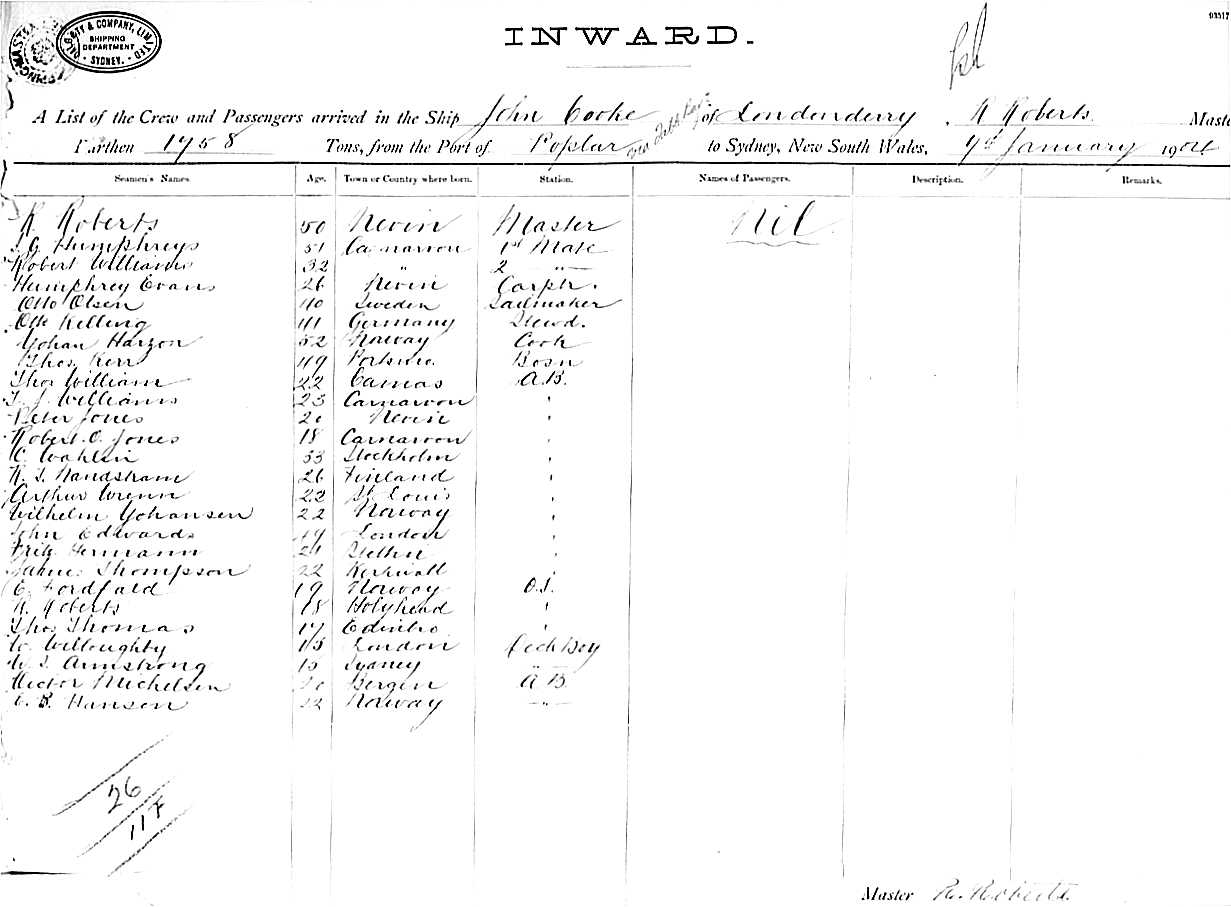 DALGETY & COMPANY, LIMITED
SHIPPING
DEPARTMENT
SYDNEY.
INWARD.
A List of the Crew and Passengers arrived in the Ship John Cooke of Londonderry, R Roberts Master
Burthen 1758 Tons, from the Port of to Sydney, New South Wales, 9th January 1904
Seamen's Names. Age. Town or Country where born. Station. Names of Passengers. Description. Remarks.
R Roberts 50 Nevin Master Nil
Humphreys 51 Carnarvon 1st Mate
Robert Williams 32 " 2 "
Humphrey Evans 26 Nevin Carptr.
Otto Olsen 40 Sweden Sailmaker
Otto Kelling 41 Germany Stewd.
Yohan Harzon 52 Norway Cook
Thos. Kerr 49 Bosn
Thos William 22 A.B.
Williams 23 Carnarvon '
Peter Jones 20 Nevin '
Robert. O. Jones 18 Carnarvon '
C. Wahlin 53 Stockholm '
26 Finland '
Arthur Wrenn 22 St Louis '
Wilhelm Yohansen 22 Norway '
John Edwards 19 London '
Fritz Hermann 21 Stettin '
James Thompson 22 Kirkwall '
19 Norway O.S.
R. Roberts 18 Holyhead '
Thos Thomas 17 Edinbro '
W. Willoughby 15 London Deck Boy
W. S. Armstrong 15 Sydney "
Victor Michelsen 20 Bergen A B
Hansen 22 Norway "
26
117
Master R. Roberts